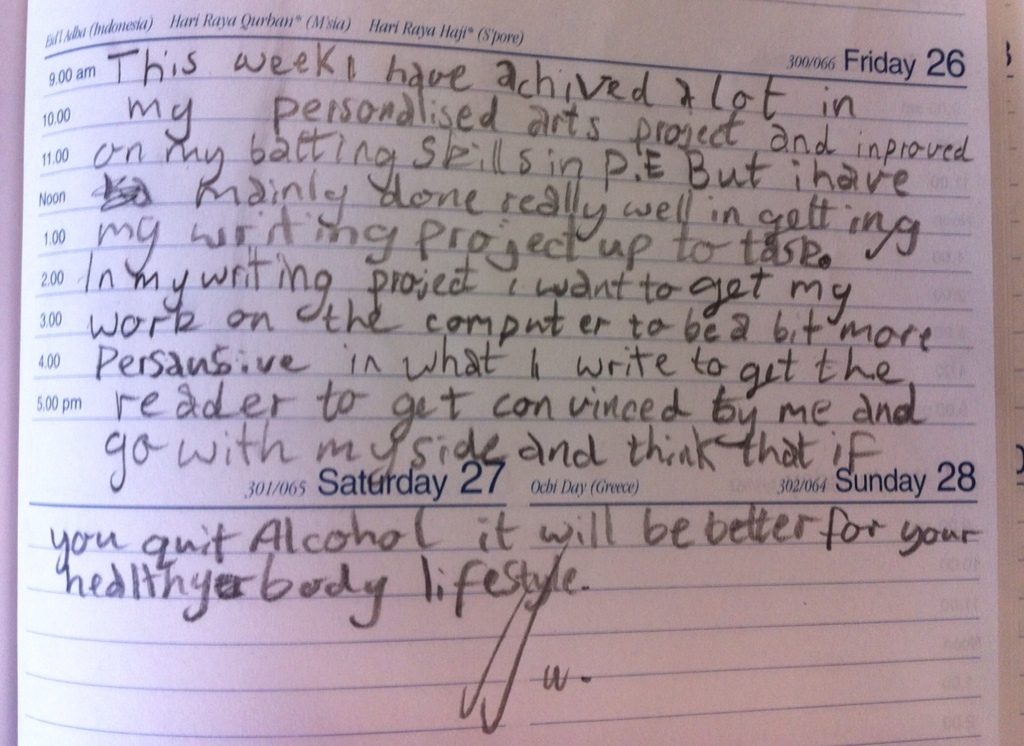 Eid'l Adha (Indonesia) Hari Raya Qurban* (M'sia) Hari Raya Haji* (S'pore)
300/066 Friday 26
9.00 am This week I have achived a lot in
10.00 my personalised arts project and inproved
11.00 on my batting skills in P.E But i have
Noon mainly done really well in getting
1.00 my writing project up to task.
2.00 In my writing project i want to get my
3.00 work on the computer to be a bit more
4.00 Persausive in what I write to get the
5.00 pm reader to get convinced by me and
go with my side and think that if
301/065 Saturday 27 Ochi Day (Greece) 302/064 Sunday 28
you quit Alcohol it will be better for your
healthyer body lifestyle.